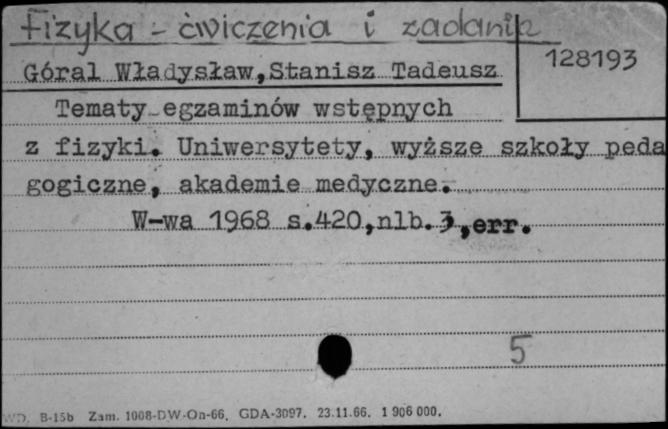 Fizyka - ćwiczenia i zadania
128193
Góral Władysław, Stanisz Tadeusz
Tematy egzaminów wstępnych
z fizyki. Uniwersytety, wyższe szkoły peda
gogiczne, akademie medyczne.
W-wa 1968 s.420,nlb.3,err.
5
WD. B-15b Zam. 1008-DW-On-66. GDA-3097. 23.11.66. 1 906 000.